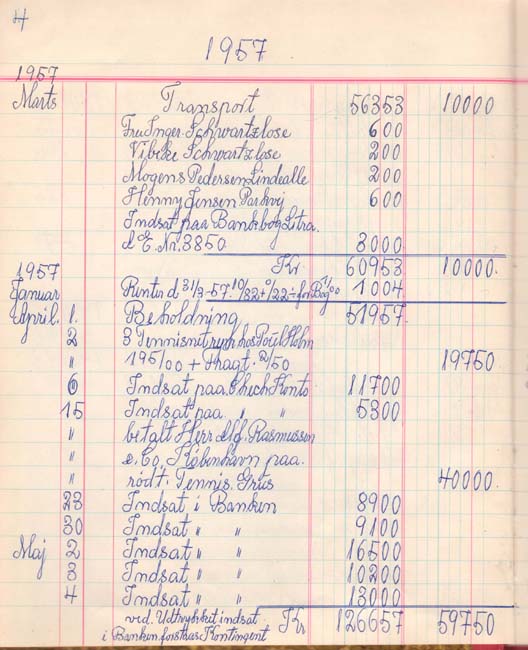 4
1957
1957
Marts Transport 56353 10000
Fru Inger Schwartzlose 600
Vibeke Schwartzlose 200
Mogens Pedersen Lindealle 200
Henny Jensen Parkvej 600
Indsat paa Bankbog Litra.
d E. Nr. 3850 3000
Kr. 60953 10000.
1957
Januar Rente d 31/3-57. 1004
April. 1. Beholdning 51957.
2 3 Tennisnit hos Poul Holm
" 195/00 + Fragt. 2/50 19750
6 Indsat paa Check Konto 11700
15 Indsat paa " " 5300
" betalt Herr Rasmussen
" & Co, København paa.
" rödt. Tennis. Grus 40000.
23 Indsat i Banken 8900
30 Indsat " " 9100
Maj 2 Indsat " " 16500
3 Indsat " " 10200
4 Indsat " " 13000
ved. Udtrykket indsat Kr 126657 59750
i Banken forstaas Kontingent